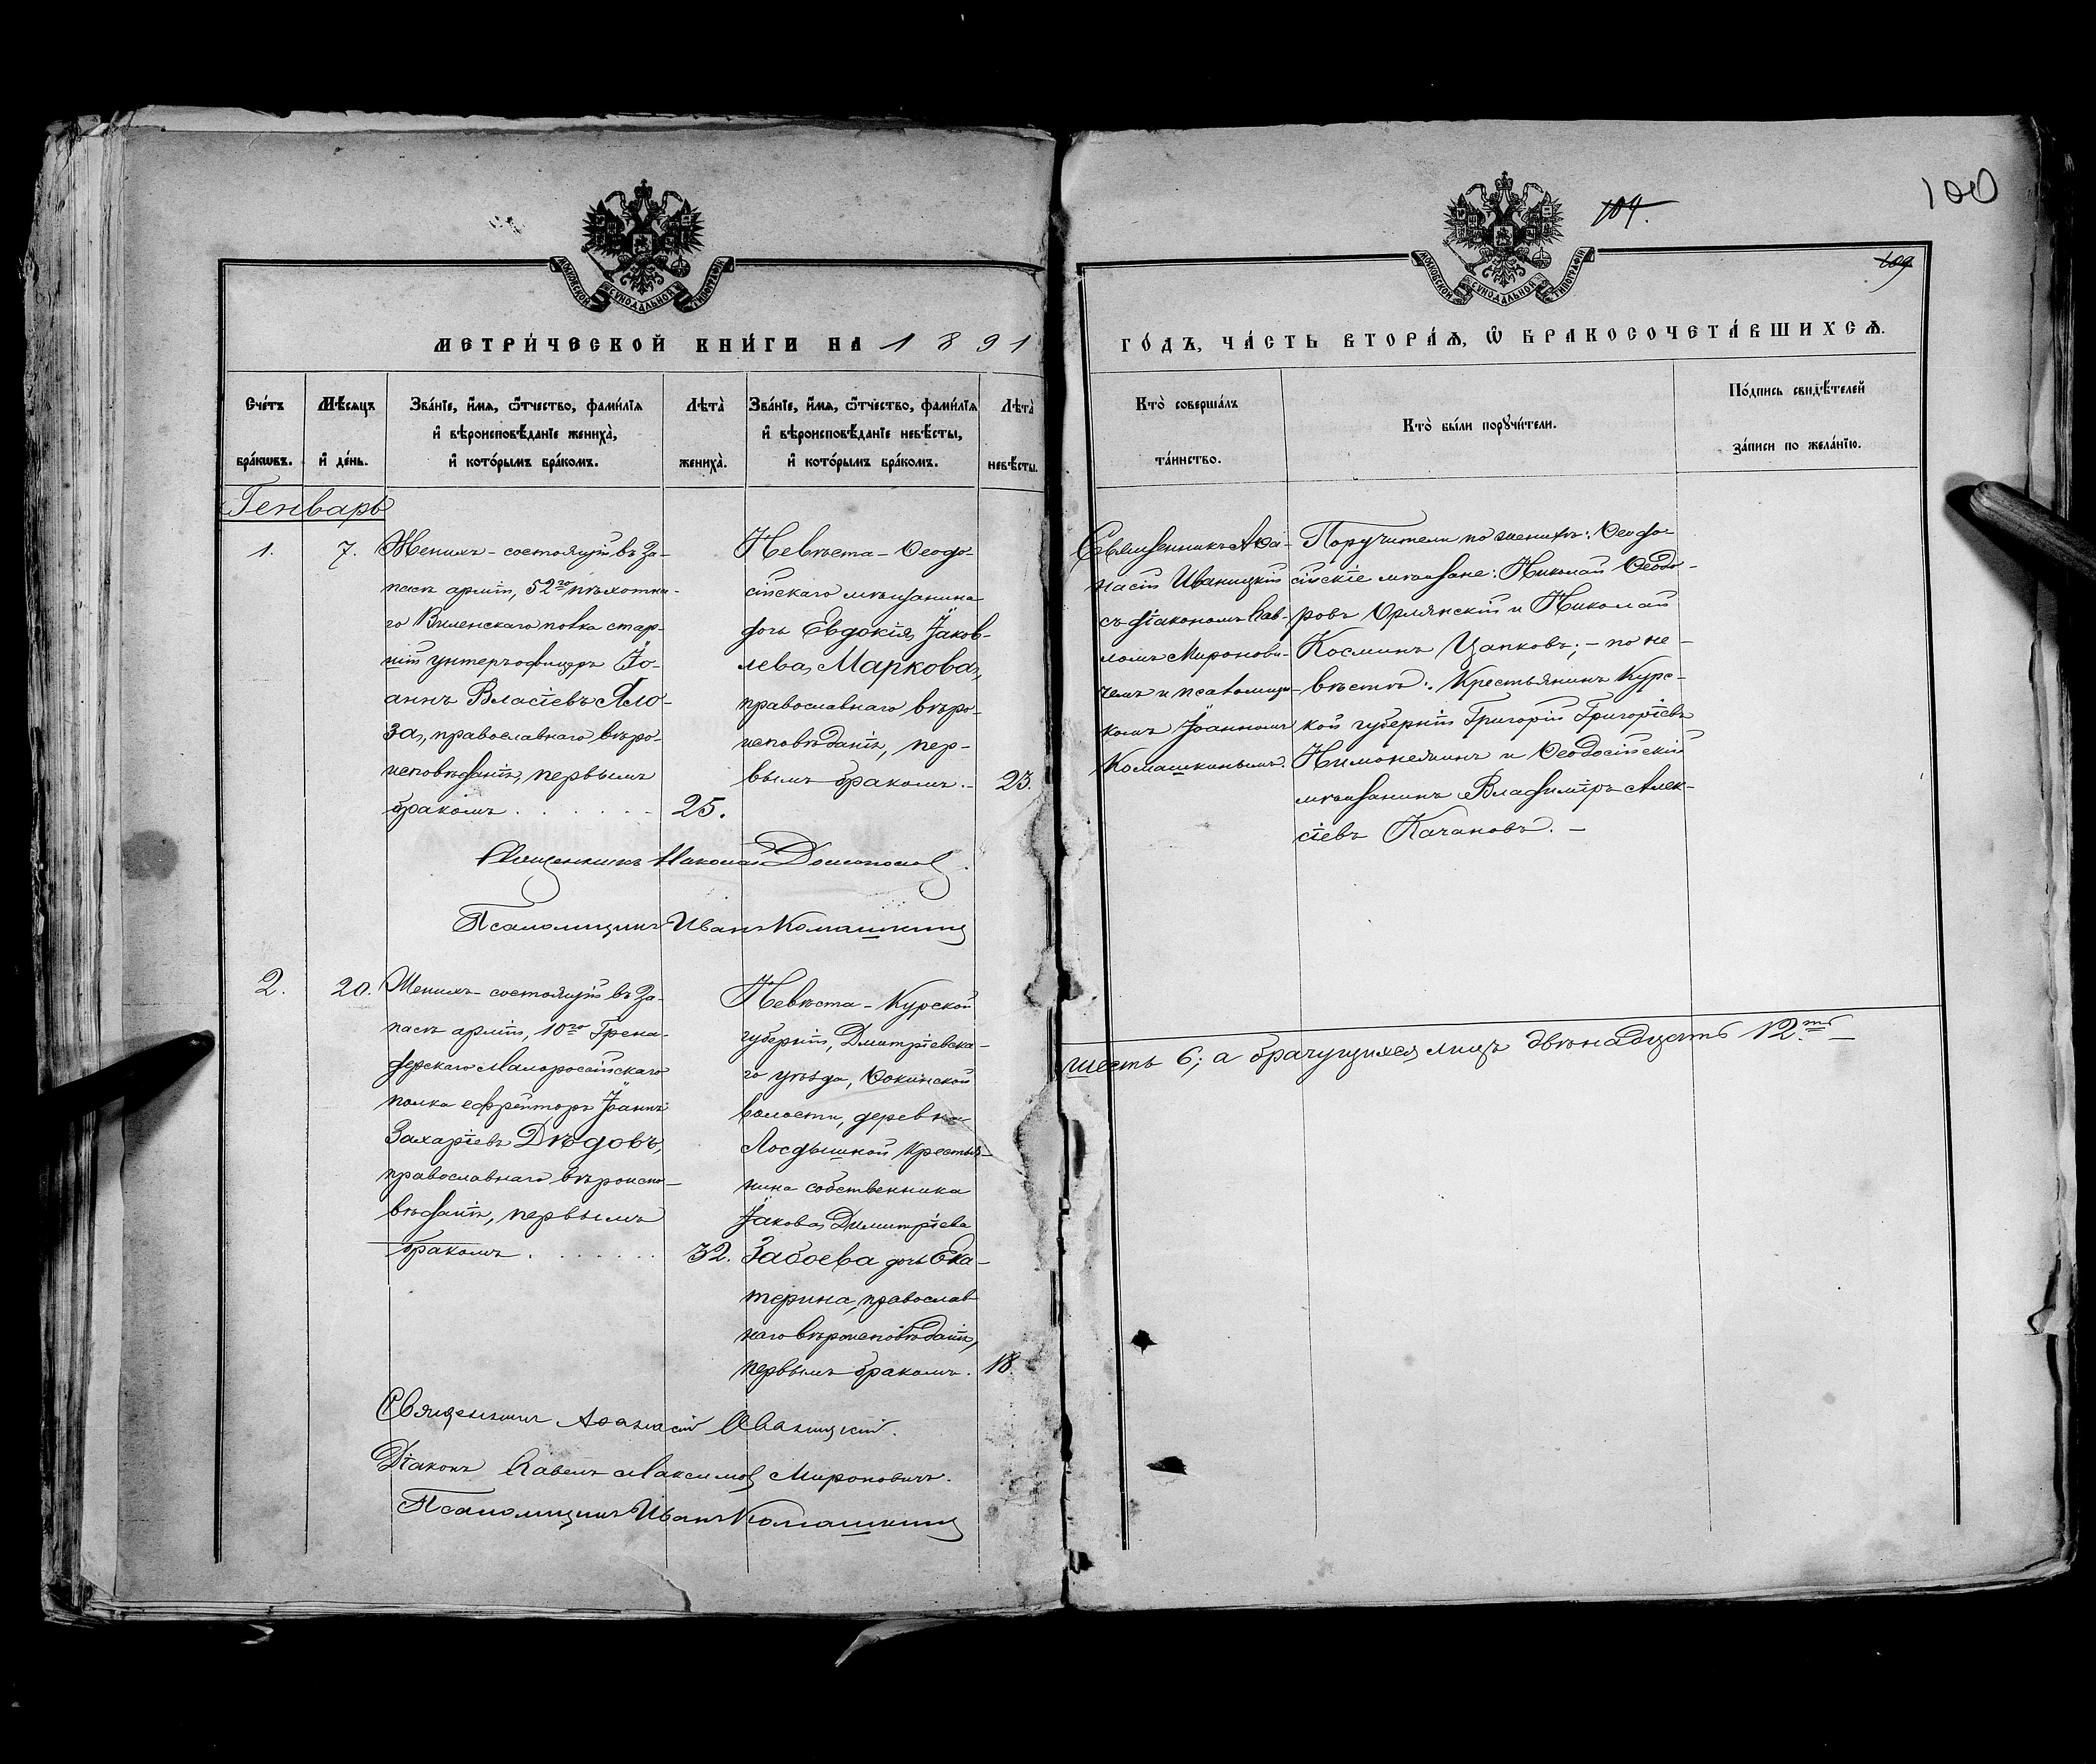 100
104.
109
МОСКОВСКОЙ СУНОДАЛЬНОЙ ТИПОГРАФІИ
МОСКОВСКОЙ СУНОДАЛЬНОЙ ТИПОГРАФІИ
МЕТРИ́ЧЕСКОЙ КНИ́ГИ НА 1891
ГО́ДЪ, ЧА́СТЬ ВТОРА́Ѧ, Ѽ БРАКОСОЧЕТА́ВШИХСѦ.
Сче́тъ
бра́кѡвъ.
Мѣ́сяцъ
и҆ де́нь.
Зва́нїе, и҆́мя, ѻ҆́тчество, фами́лїя
и҆ вѣроисповѣ́данїе жениха̀,
и҆ кото́рымъ бра́комъ.
Лѣта̀
жениха̀.
Зва́нїе, и҆́мя, ѻ҆́тчество, фами́лїя
и҆ вѣроисповѣ́данїе невѣ́сты,
и҆ кото́рымъ бра́комъ.
Лѣта̀
невѣ́сты.
Кто̀ соверша́лъ
та́инство.
Кто̀ бы́ли порꙋчи́тели.
По́дпись свидѣ́телей
за́писи по жела́нїю.
Генварь
1.
7.
Женихъ - состоящій въ За-
пасѣ арміи, 52го пѣхотна-
го Виленскаго полка стар-
шій унтеръ-офицеръ Іо-
аннъ Власіевъ Ло-
за, православнаго вѣро-
исповѣданія, первымъ
бракомъ . . . . . .
25.
Невѣста - Ѳеодо-
сійскаго мѣщанина
дочь Евдокія Іаков-
лева Маркова,
православнаго вѣро-
исповѣданія, пер-
вымъ бракомъ. -
23.
Священникъ Аѳа-
насій Иваницкій
съ діакономъ Пав-
ломъ Миронови-
чемъ и псаломщи-
комъ Іоанномъ
Комашкинымъ.
Поручители по женихѣ: Ѳеодо-
сійскіе мѣщане: Николай Ѳеодо-
ровъ Орлянскій и Николай
Косминъ Цапковъ; - по не-
вѣстѣ: Крестьянинъ Курс-
кой губерніи Григорій Григоріевъ
и Ѳеодосійскій
мѣщанинъ Владиміръ Алек-
сіевъ Качановъ. -
Священникъ Николай
Псаломщикъ Иванъ Комашкинъ
2.
20.
Женихъ - состоящій въ За-
пасѣ арміи, 10го Грена-
дерскаго Малоросійскаго
полка ефрейторъ Іоаннъ
Захаріевъ Дѣдовъ,
православнаго вѣроиспо-
вѣданія, первымъ
бракомъ . . . . . . .
32.
Невѣста - Курской
губерніи, Дмитріевска-
го уѣзда,
волости, деревни
Крестья-
нина собственника
Іакова Димитріева
Забоева дочь Ека-
терина, православ-
наго вѣроисповѣданія,
первымъ бракомъ.
18.
шесть 6; а брачущихся лицъ двѣнадцать 12.ть
Священникъ Аѳанасій Иваницкій.
Діаконъ Павелъ Максимовъ Мироновичъ.
Псаломщикъ Иванъ Комашкинъ